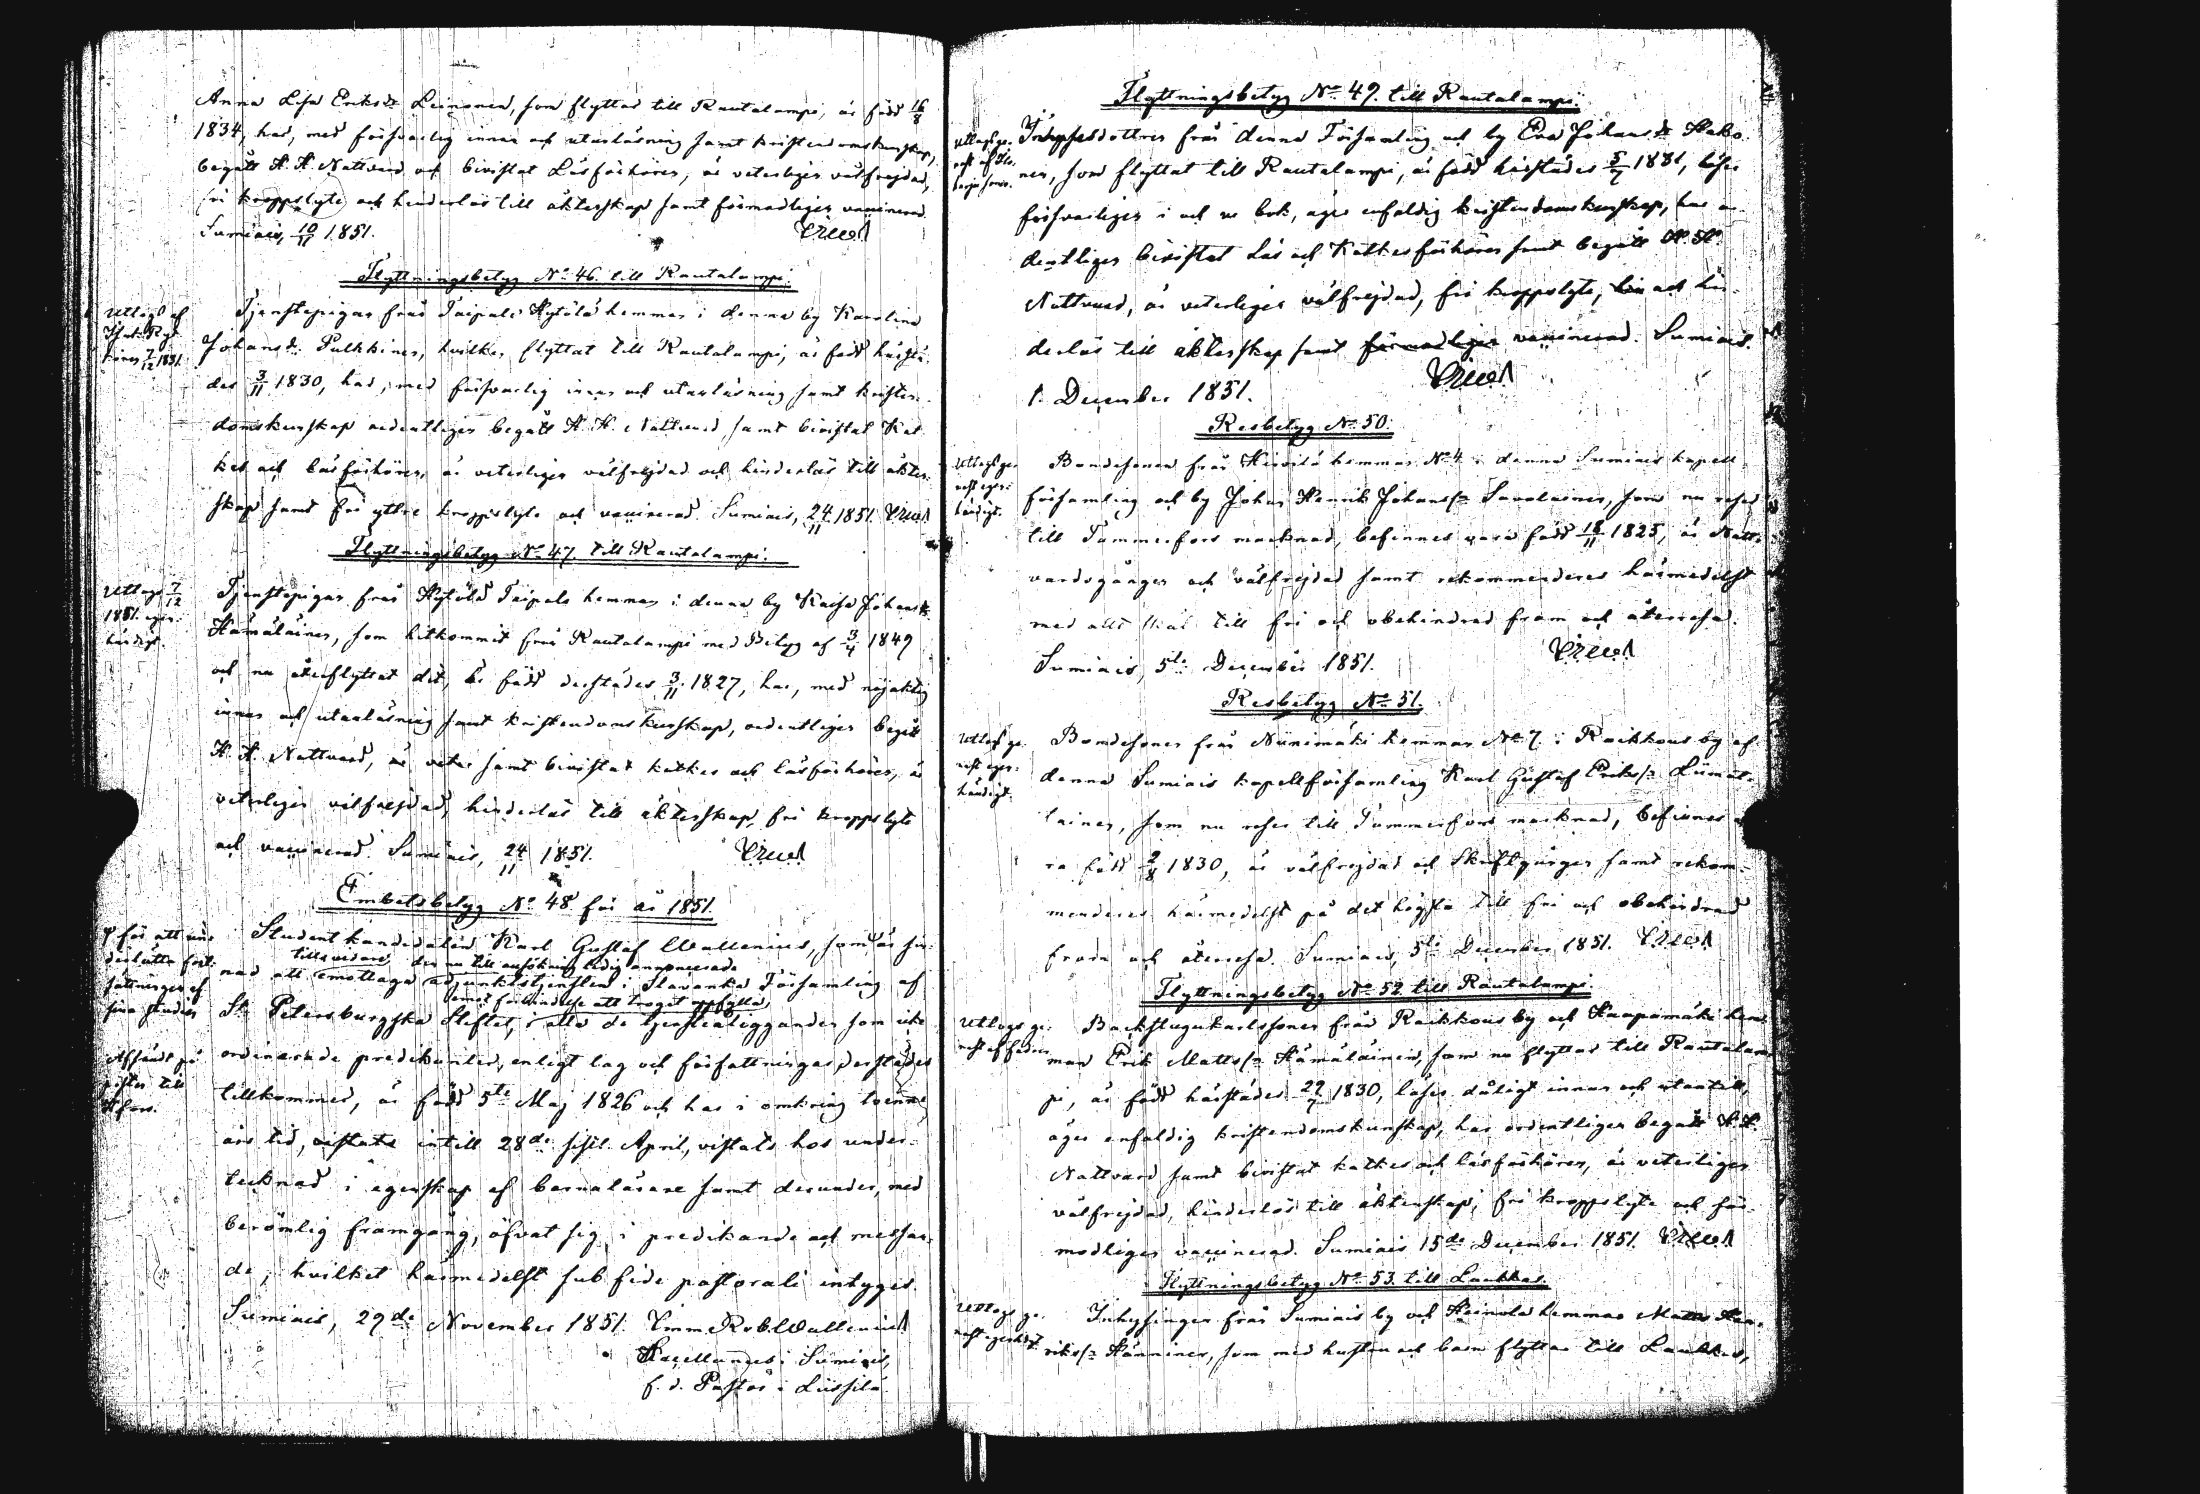 Anna Lisa Eriksdr Leinonen, som flyttar till Rautalampi, är född 16/8
1834, har, med försvarlig innan och utanläsning samt kristendomskunskap,
begått H. H. Nattvard och bivistat Läsförhören, är veterligen välfrejdad,
fri kroppslyte och hinderlös till äktenskap samt förmodligen vaccinerad.
Sumiais, 10/11 1851.
Flyttningsbetyg No 46. till Rautalampi.
Uttagit af
7/12 1851.
Tjenstepigan från Taipale Hytölä hemman i denna by Karolina
Johansdr Pulkkinen, hvilken flyttat till Rautalampi, är född härstä-
des 3/11 1830, har, med försvarlig innan och utanläsning samt kristen-
domskunskap ordentligen begått H. H. Nattvard samt bivistat Kat-
kes och läsförhören, är veterligen välfrejdad och hinderlös till äkten-
skap samt fri yttre kroppslyte och vaccinerad. Sumiais, 24/11 1851.
Flyttningsbetyg No 47. till Rautalampi.
Uttagit 7/12
1851. egen-
händigt.
Tjenstepigan från Hytölä Taipale hemman i denna by Kaisa Johansdr
Hämäläinen, som hitkommit från Rautalampi med Betyg af 3/4 1849
och nu återflyttat dit, är född derstädes 3/11 1827, har, med nöjaktig
innan och utanläsning samt kristendomskunskap, ordentligen begått
H. H. Nattvard, samt bivistat katkes och läsförhören, är
veterligen välfrejdad, hinderlös till äktenskap, fri kroppslyte
och vaccinerad. Sumiais, 24/11 1851.
Embetsbetyg No 48 för år 1851.
för att
fort-
sättningen af
sina studier
Afsändt på
posten till
H:fors.
Studentkandidaten Karl Gustaf Wallenius, som är sin-
tillsvidare, den nu till ansökning ledig annoncerade
nad att emottaga adjunktstjensten i Slavanka Församling af
emot förbindelse att troget uppfylla
St. Petersburgska Stiftet, i alla de tjensteåligganden som icke
ordinerade predikanter, enligt lag och författningar, derstädes
tillkommer, är född 5te Maj 1826 och har i omkring tvenne
års tid, vistats intill 28de sistl. April, vistats hos under-
tecknad i egenskap af barnalärare samt derunder, med
berömlig framgång, öfvat sig i predikande och messan-
de, hvilket härmedelst sub fide pastorali intygas.
Sumiais, 29de November 1851. Emm. Rob. Wallenius
Kapellanus i Sumiais,
f. d. Pastor i Liissilä
Flyttningsbetyg No 49. till Rautalampi.
Inhysesdottren från denna Församling och by Eva Johansdr Hako-
nen, som flyttat till Rautalampi, är född härstädes 5/7 1831, läser
försvarligen i och ur bok, äger enfaldig kristendomskunskap, har or-
dentligen bivistat Läs och Katkesförhören samt begått H. H.
Nattvard, är veterligen välfrejdad, fri kroppslyte, och hin-
derlös till äktenskap samt förmodligen vaccinerad. Sumiais.
1. December 1851.
Resbetyg No 50.
egen-
händigt.
Bondesonen från Hirvilä hemman No 4 i denna Sumiais kapell-
församling och by Johan Henrik Johansson Savolainen, som nu reser
till Tammerfors marknad, befinnes vara född 18/11 1825, är Natt-
vardsgången och välfrejdad samt rekommenderes härmedelst
med allt skäl till fri och obehindrad fram och återresa.
Sumiais, 5te December 1851.
Resbetyg No 51.
egen-
händigt.
Bondesonen från Niinimäki hemman No 7 i Raikkous by af
denna Sumiais kapellförsamling Karl Gustaf Eriksson Liimat-
tainen, som nu reser till Tammerfors marknad, befinnes va-
ra född 2/8 1830, är välfrejdad och Skriftgången samt rekom-
menderes härmedelst på det högsta till fri och obehindrad
fram och återresa. Sumiais, 5te December 1851.
Flyttningsbetyg No 52 till Rautalampi.
Backstugukarlssonen från Raikkous by och Haapamäki hem-
man Erik Mattsson Hämäläinen, som nu flyttar till Rautalam-
pi, är född härstädes 22/7 1830, läser dåligt innan och utantill,
äger enfaldig kristendomskunskap, har ordentligen begått H. H.
Nattvard samt bivistat katkes och läsförhören, är veterligen
välfrejdad, hinderlös till äktenskap, fri kroppslyte och för-
modligen vaccinerad. Sumiais 15de December 1851.
Flyttningsbetyg No 53. till Laukkas.
Inhysingen från Sumiais by och Heinola hemman Matts Hen-
riksson Hänninen, som med hustru och barn flyttar till Laukkas,